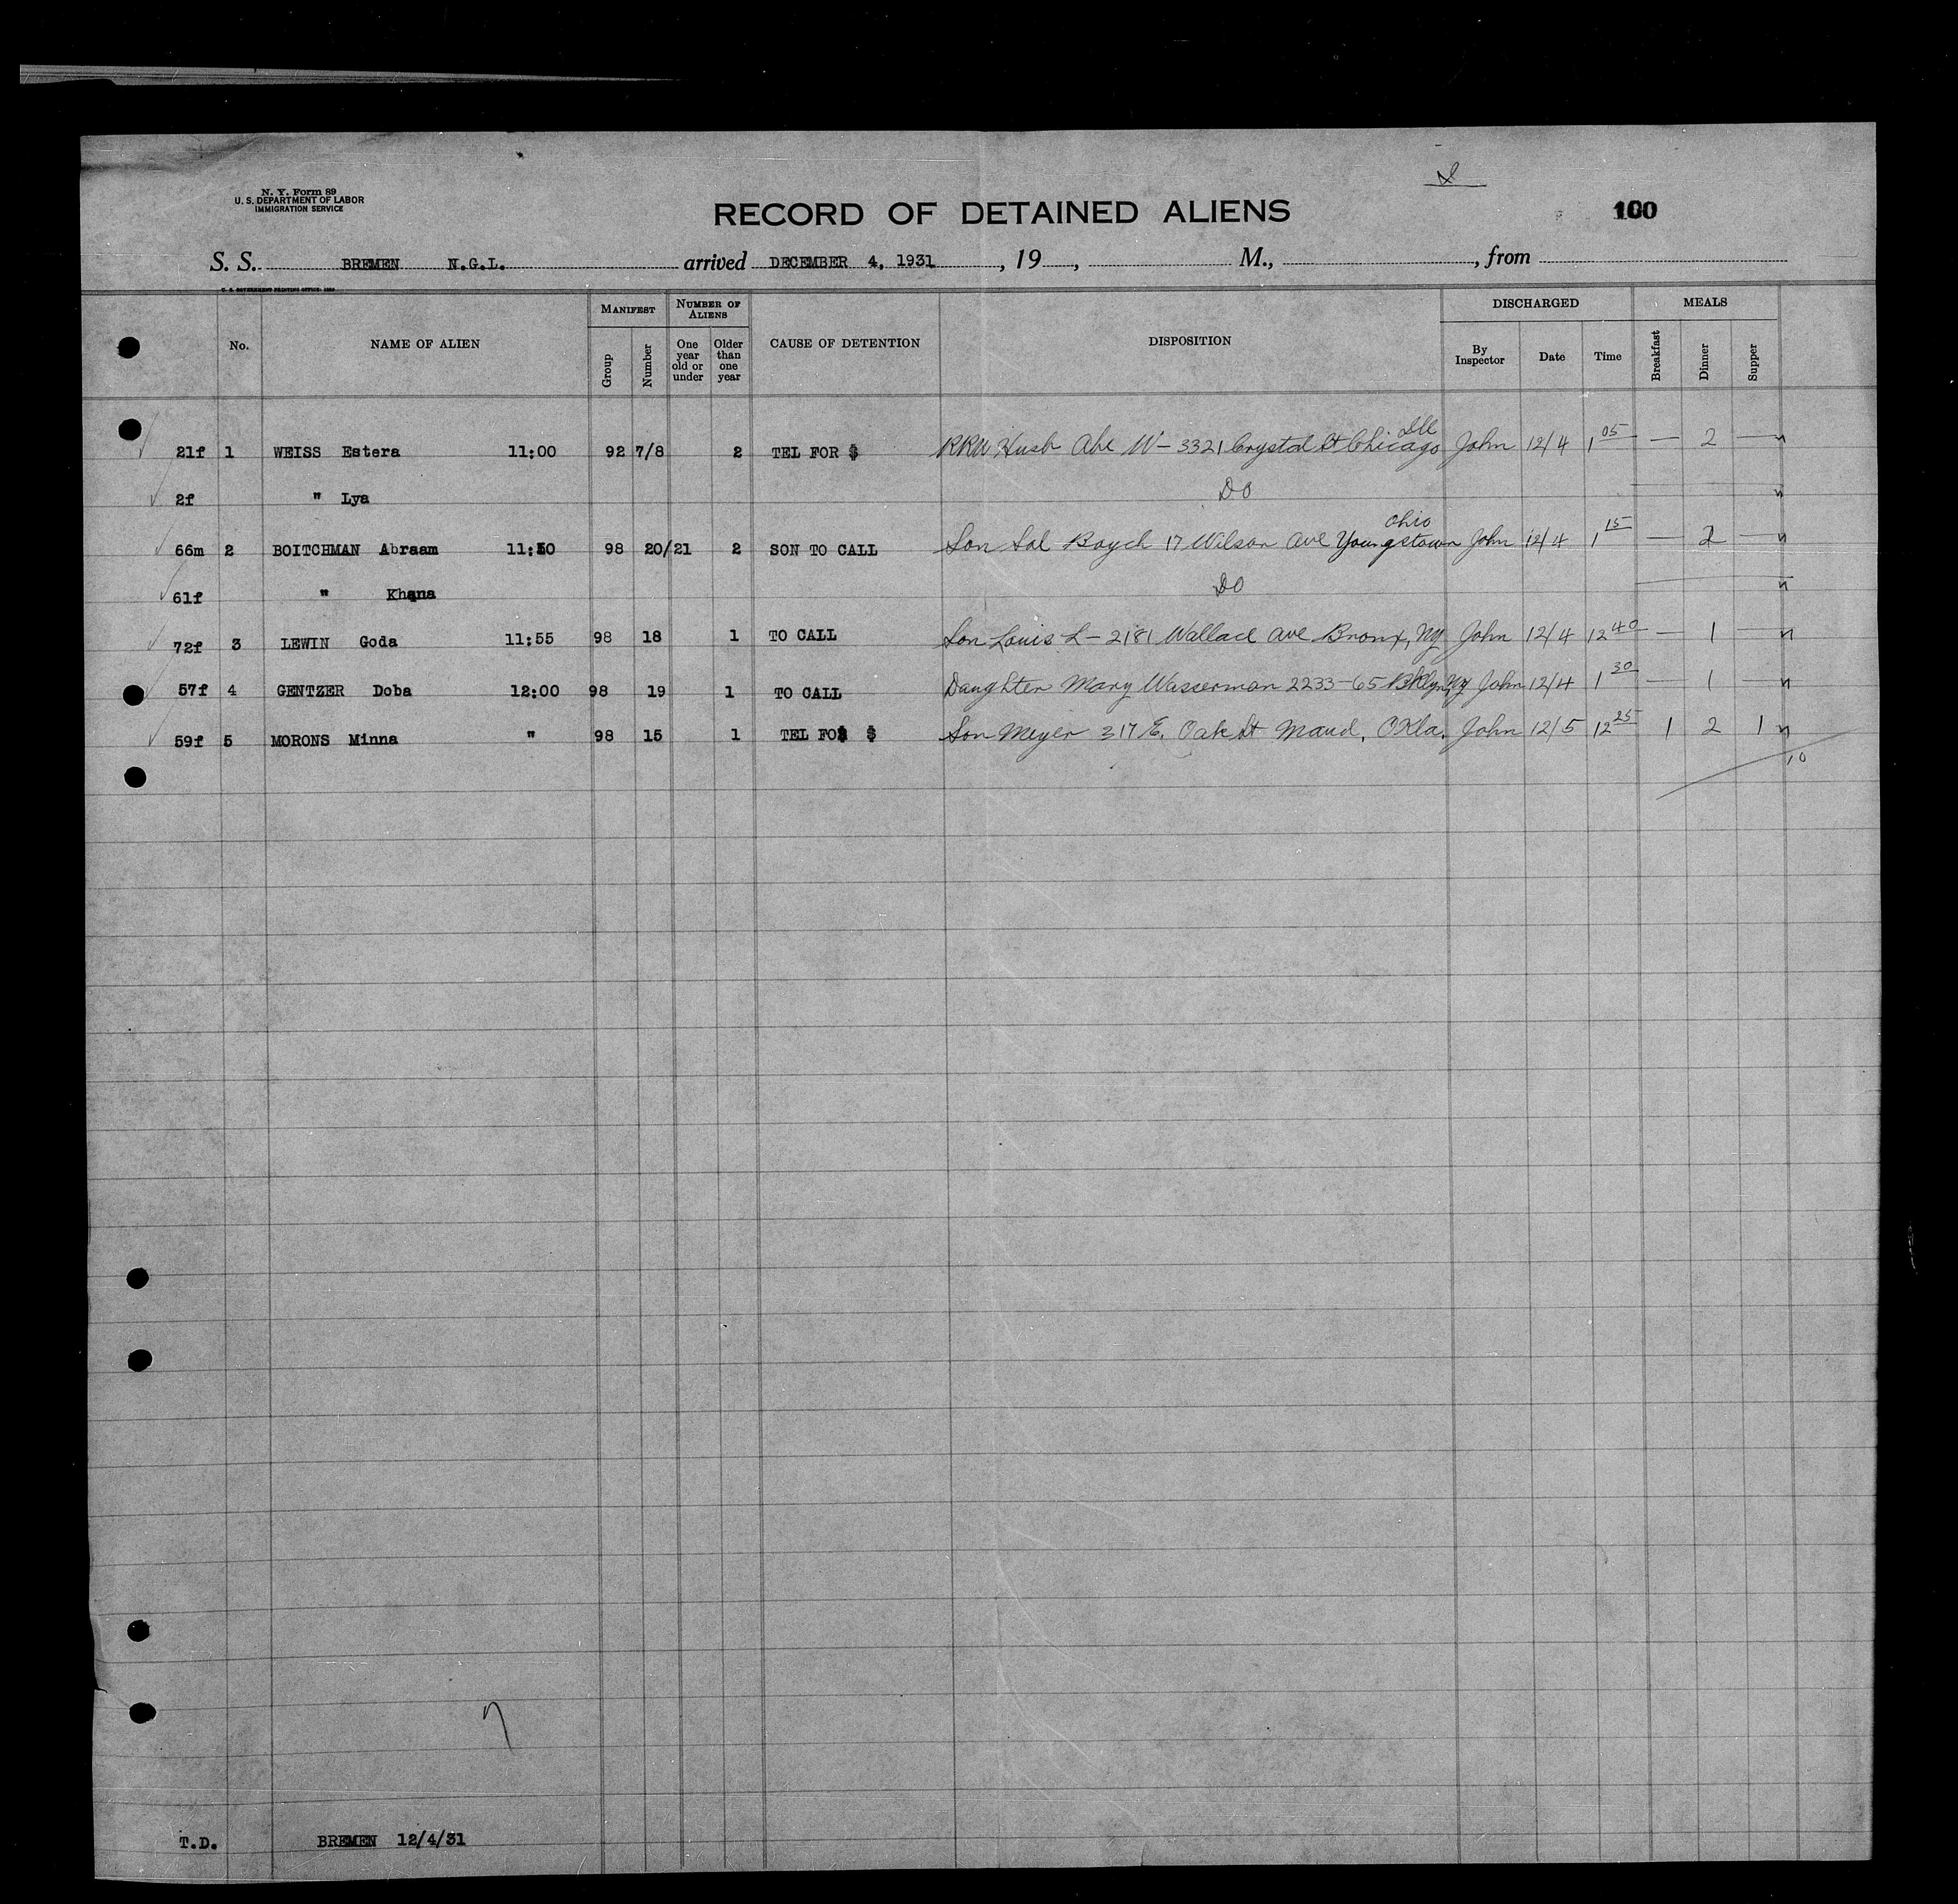 N. Y. Form 89
U. S. DEPARTMENT OF LABOR
IMMIGRATION SERVICE
RECORD OF DETAINED ALIENS
100
S. S. BREMEN N.G.L. arrived DECEMBER 4, 1931, 19 , M., , from
U. S. GOVERNMENT PRINTING OFFICE
No. NAME OF ALIEN MANIFEST Group Number NUMBER OF ALIENS One year old or under Older than one year CAUSE OF DETENTION DISPOSITION DISCHARGED By Inspector Date Time MEALS Breakfast Dinner Supper
21f 1 WEISS Estera 11:00 92 7/8 2 TEL FOR $ Husb Abe W - 3321 Crystal St Chicago Ill John 12/4 1 05 — 2 —
2f " Lya DO
66m 2 BOITCHMAN Abraam 11:50 98 20/21 2 SON TO CALL Son Sol Boych 17 Wilson Ave Youngstown Ohio John 12/4 1 15 — 2 —
61f " Khana DO
72f 3 LEWIN Goda 11:55 98 18 1 TO CALL Son Louis L - 2181 Wallace Ave Bronx, NY John 12/4 12 40 — 1 —
57f 4 GENTZER Doba 12:00 98 19 1 TO CALL Daughter Mary Wasserman 2233-65 Bklyn, NY John 12/4 1 30 — 1 —
59f 5 MORONS Minna " 98 15 1 TEL FO$ $ Son Meyer 317 E. Oak St Maud, Okla. John 12/5 12 25 1 2 1
10
T.D. BREMEN 12/4/31